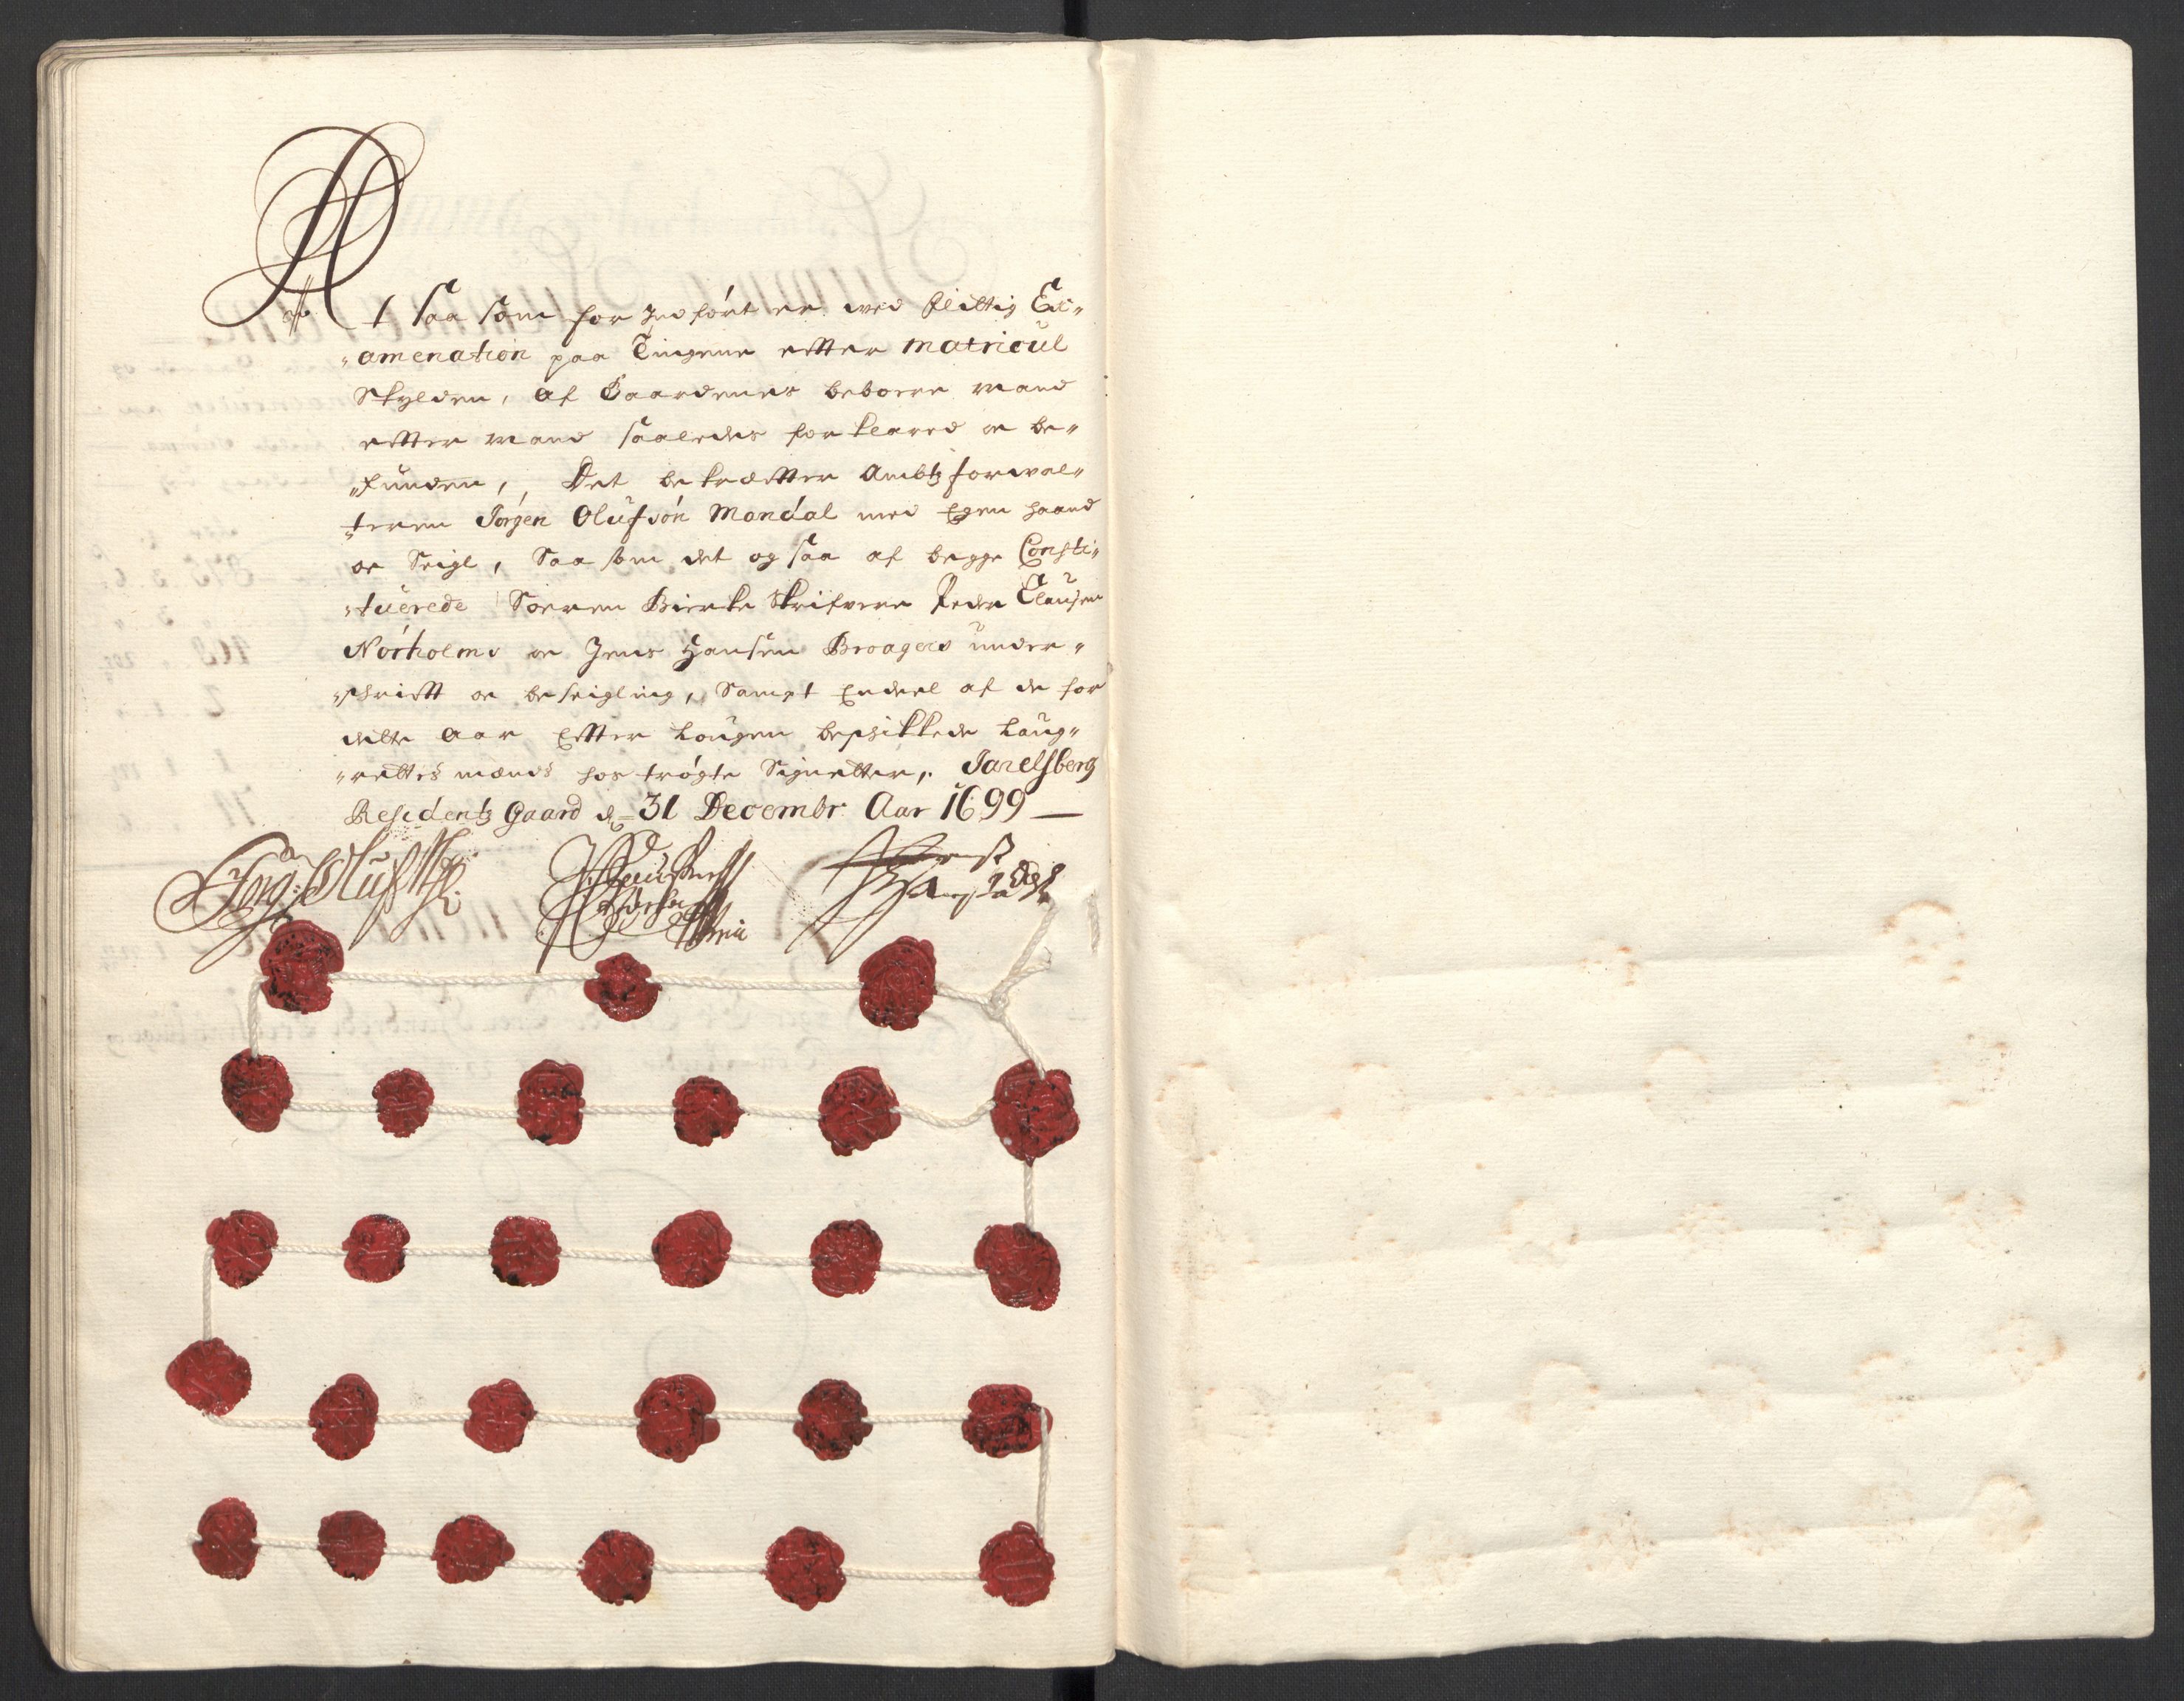 At saa som for Indført er med flittig Ex„
„amenation paa Tingene efter matricul
Skylden, af Gaardenes beboere mand
efter mand saaledes forklared oc be„
„funden, Det bekræfter Ambtz forwal„
„teren Jørgen Olufsøn Mandal med Egen haand
oc Seigl, Saa som det og saa af begge Consti„
„tuerede Soeren Skrifvere Peder Clausen
Nørholmb oc Jens Hansen Broagers under„
„schrift oc beseigling, Sampt Endeel af de for
dette Aar Efter Lougen beschikkede Laug„
„rettes mænds hostrøgte Signetter, Jarelsberg
Residentz Gaard d. 31 Decembr Aar 1699 —